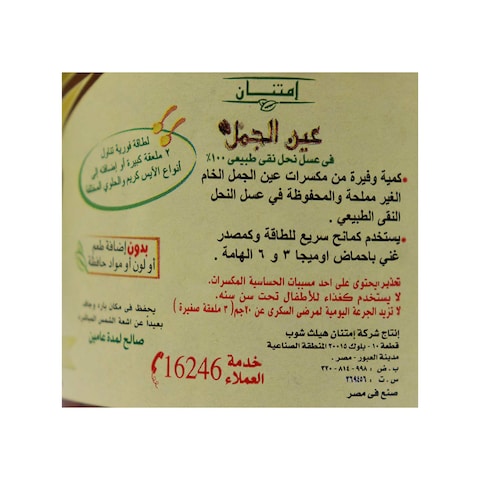 إمتنان
عين الجمل
فى عسل نحل نقى طبيعى ١٠٠٪
كمية وفيرة من مكسرات عين الجمل الخام
الغير مملحة والمحفوظة في عسل النحل
النقى الطبيعي .
يستخدم كمانح سريع للطاقة وكمصدر
غني باحماض اوميجا ٣ و ٦ الهامة .
تحذير:يحتوى على احد مسببات الحساسية المكسرات.
لا يستخدم كغذاء للأطفال تحت سن سنه.
لا تزيد الجرعة اليومية لمرضى السكرى عن ٢٠جم( ٣ ملعقة صغيرة )
إنتاج شركة إمتنان هيلث شوب
قطعة ١٠ - بلوك ٢٠٠١٥ المنطقة الصناعية
مدينة العبور - مصر .
ب . ض : ٩٩٨ - ٨١٤ - ٣٢٠
س . ت : ٣٦٩٤٥٦
صنع فى مصر
لطاقة فورية تناول
٢ ملعقة كبيرة أو إضافته إلى
أنواع الأيس كريم والحلوي المختلفة
بدون إضافة طعم
أو لون أو مواد حافظة
يحفظ فى مكان بارد وجاف
بعيداً عن اشعة الشمس المباشرة
صالح لمدة عامين
خدمة
العملاء
16246